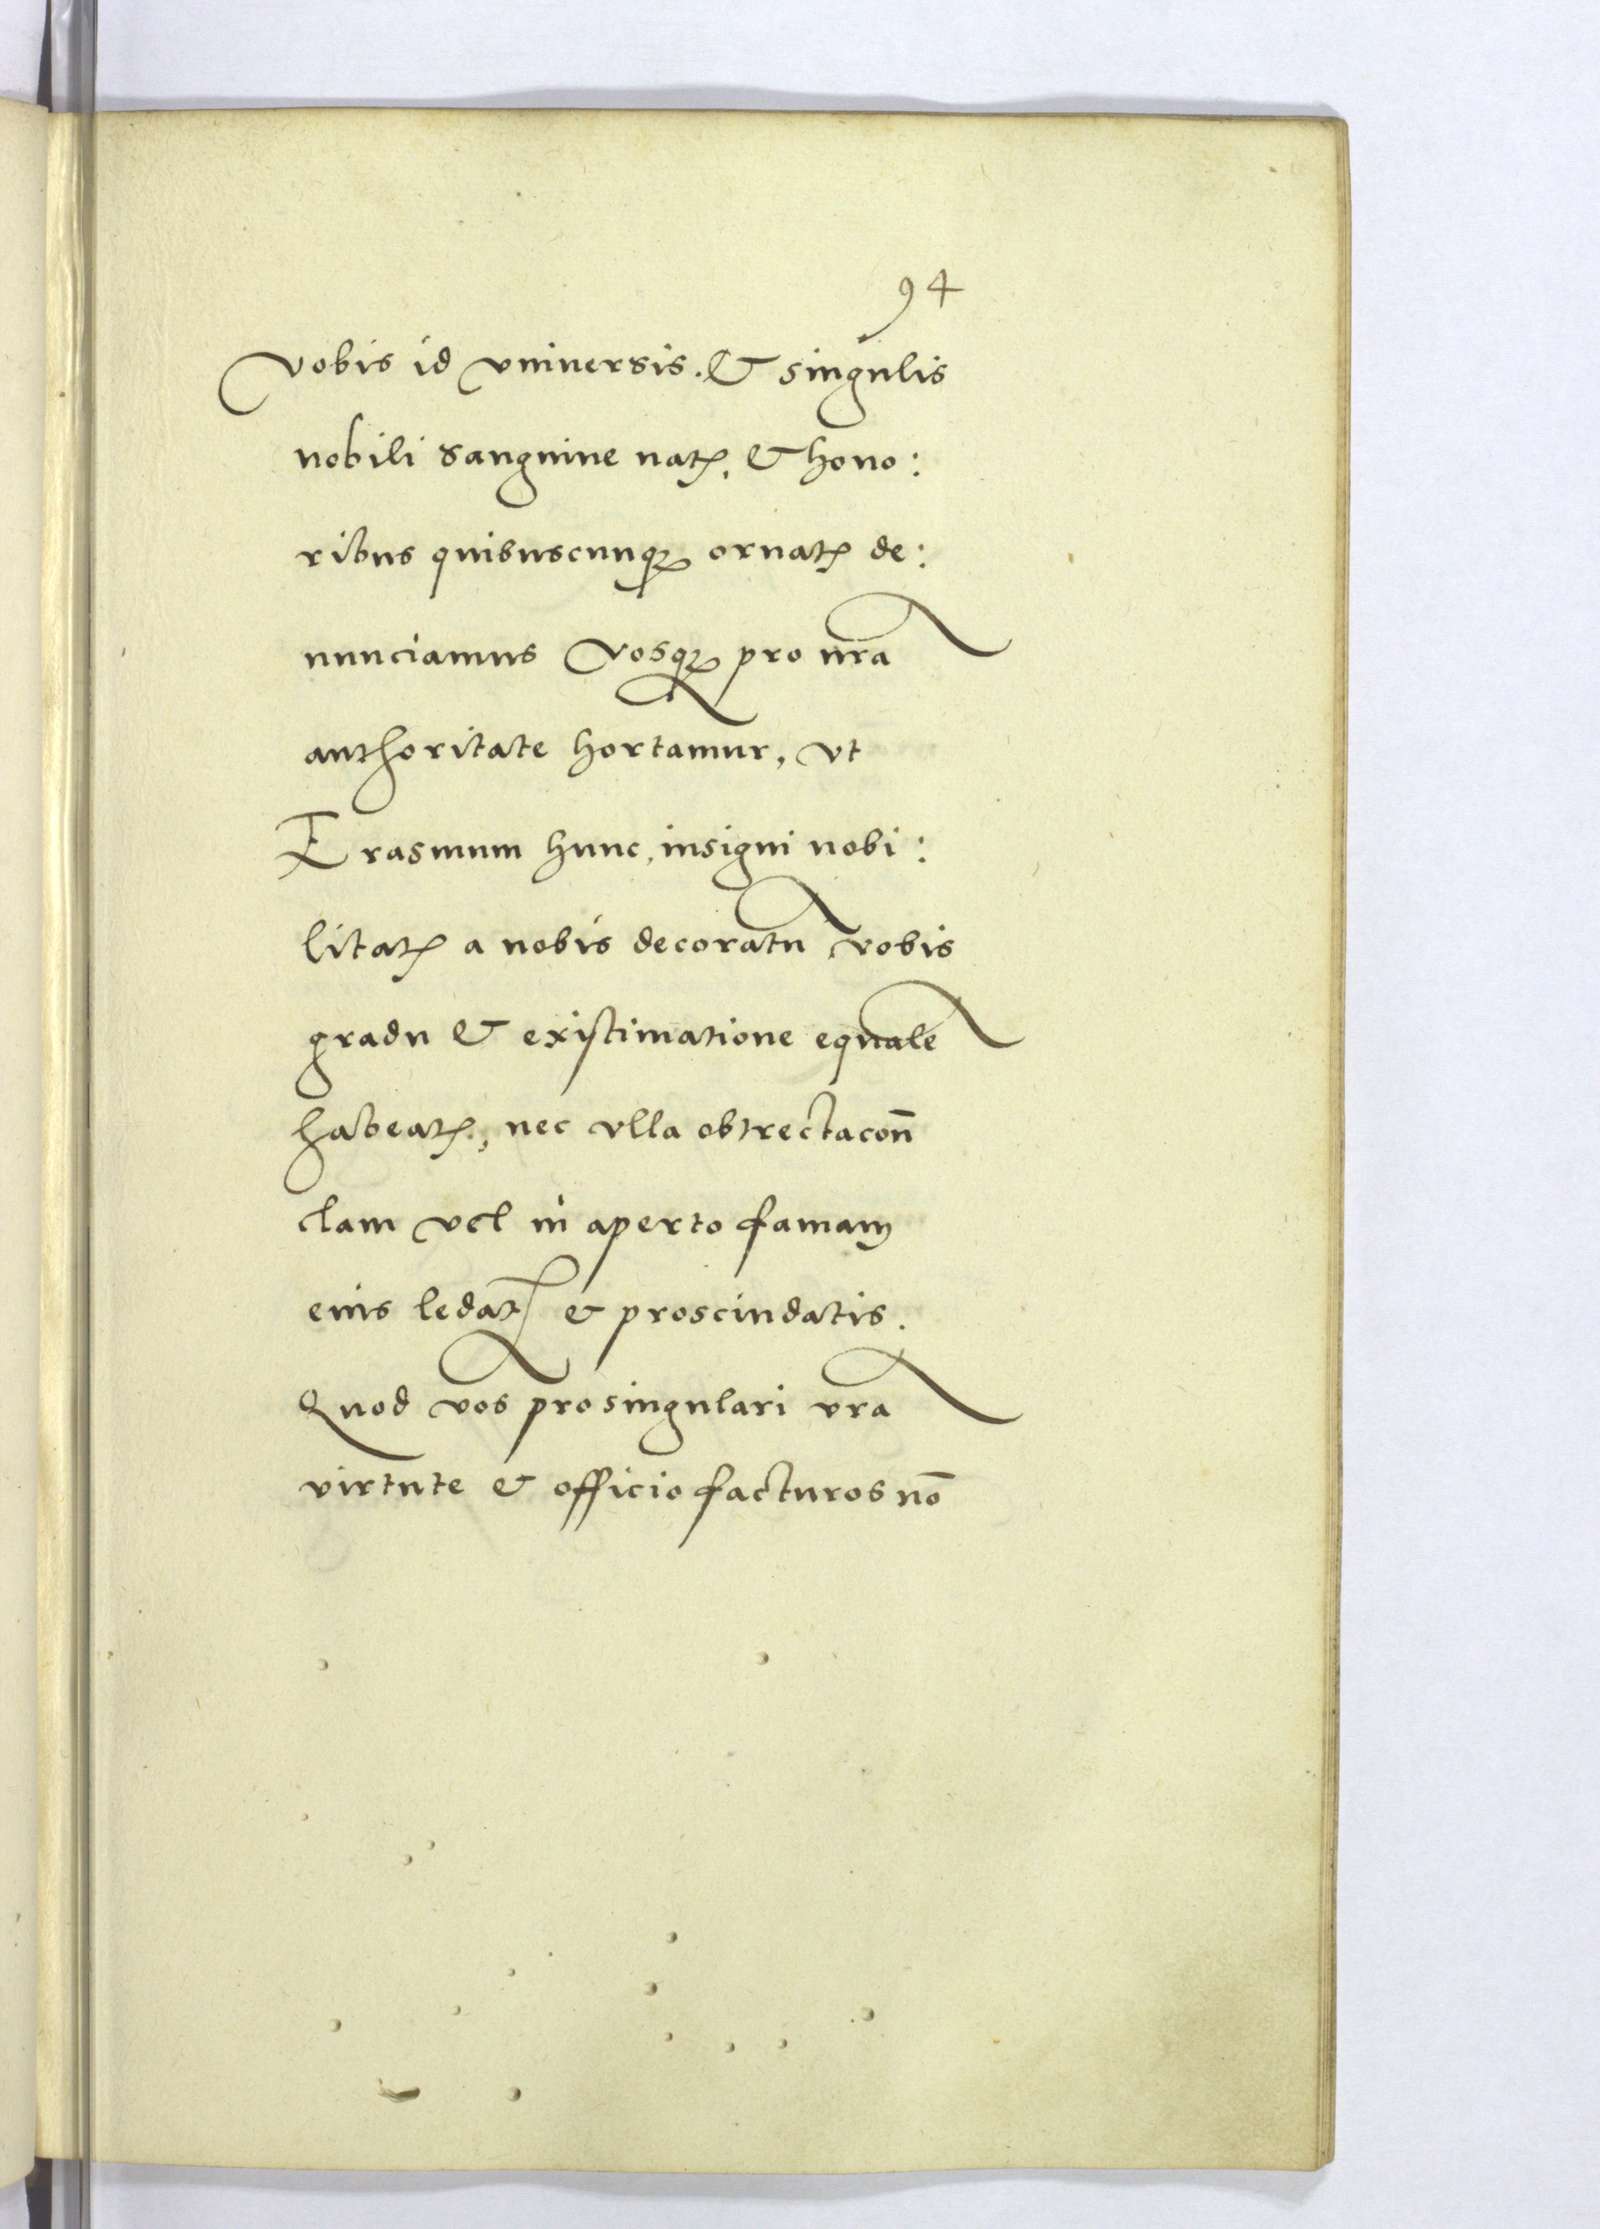 94
Vobis id vniuersis. & singulis
nobili sanguine natꝭ, & hono:
ribus quibuscunqꝫ ornatꝭ de:
nunciamus Vosqꝫ pro nr̃a
authoritate hortamur, vt
Erasmum hunc, insigni nobi:
litatꝭ a nobis decoratũ vobis
gradu & existimatione equalẽ
habeatꝭ, nec vlla obtrectacoñ
clam vel in aperto famam
eius ledatꝭ & proscindatis.
Quod vos pro singulari vr̃a
virtute & officio facturos nō